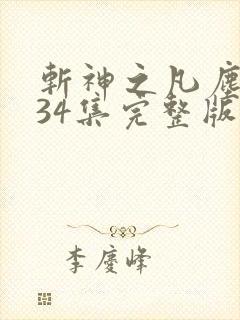 斬神之凡塵
34集完整版
李慶峰